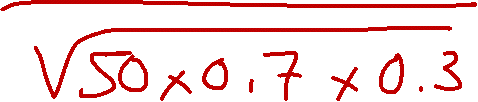 √50×0.7×0.3